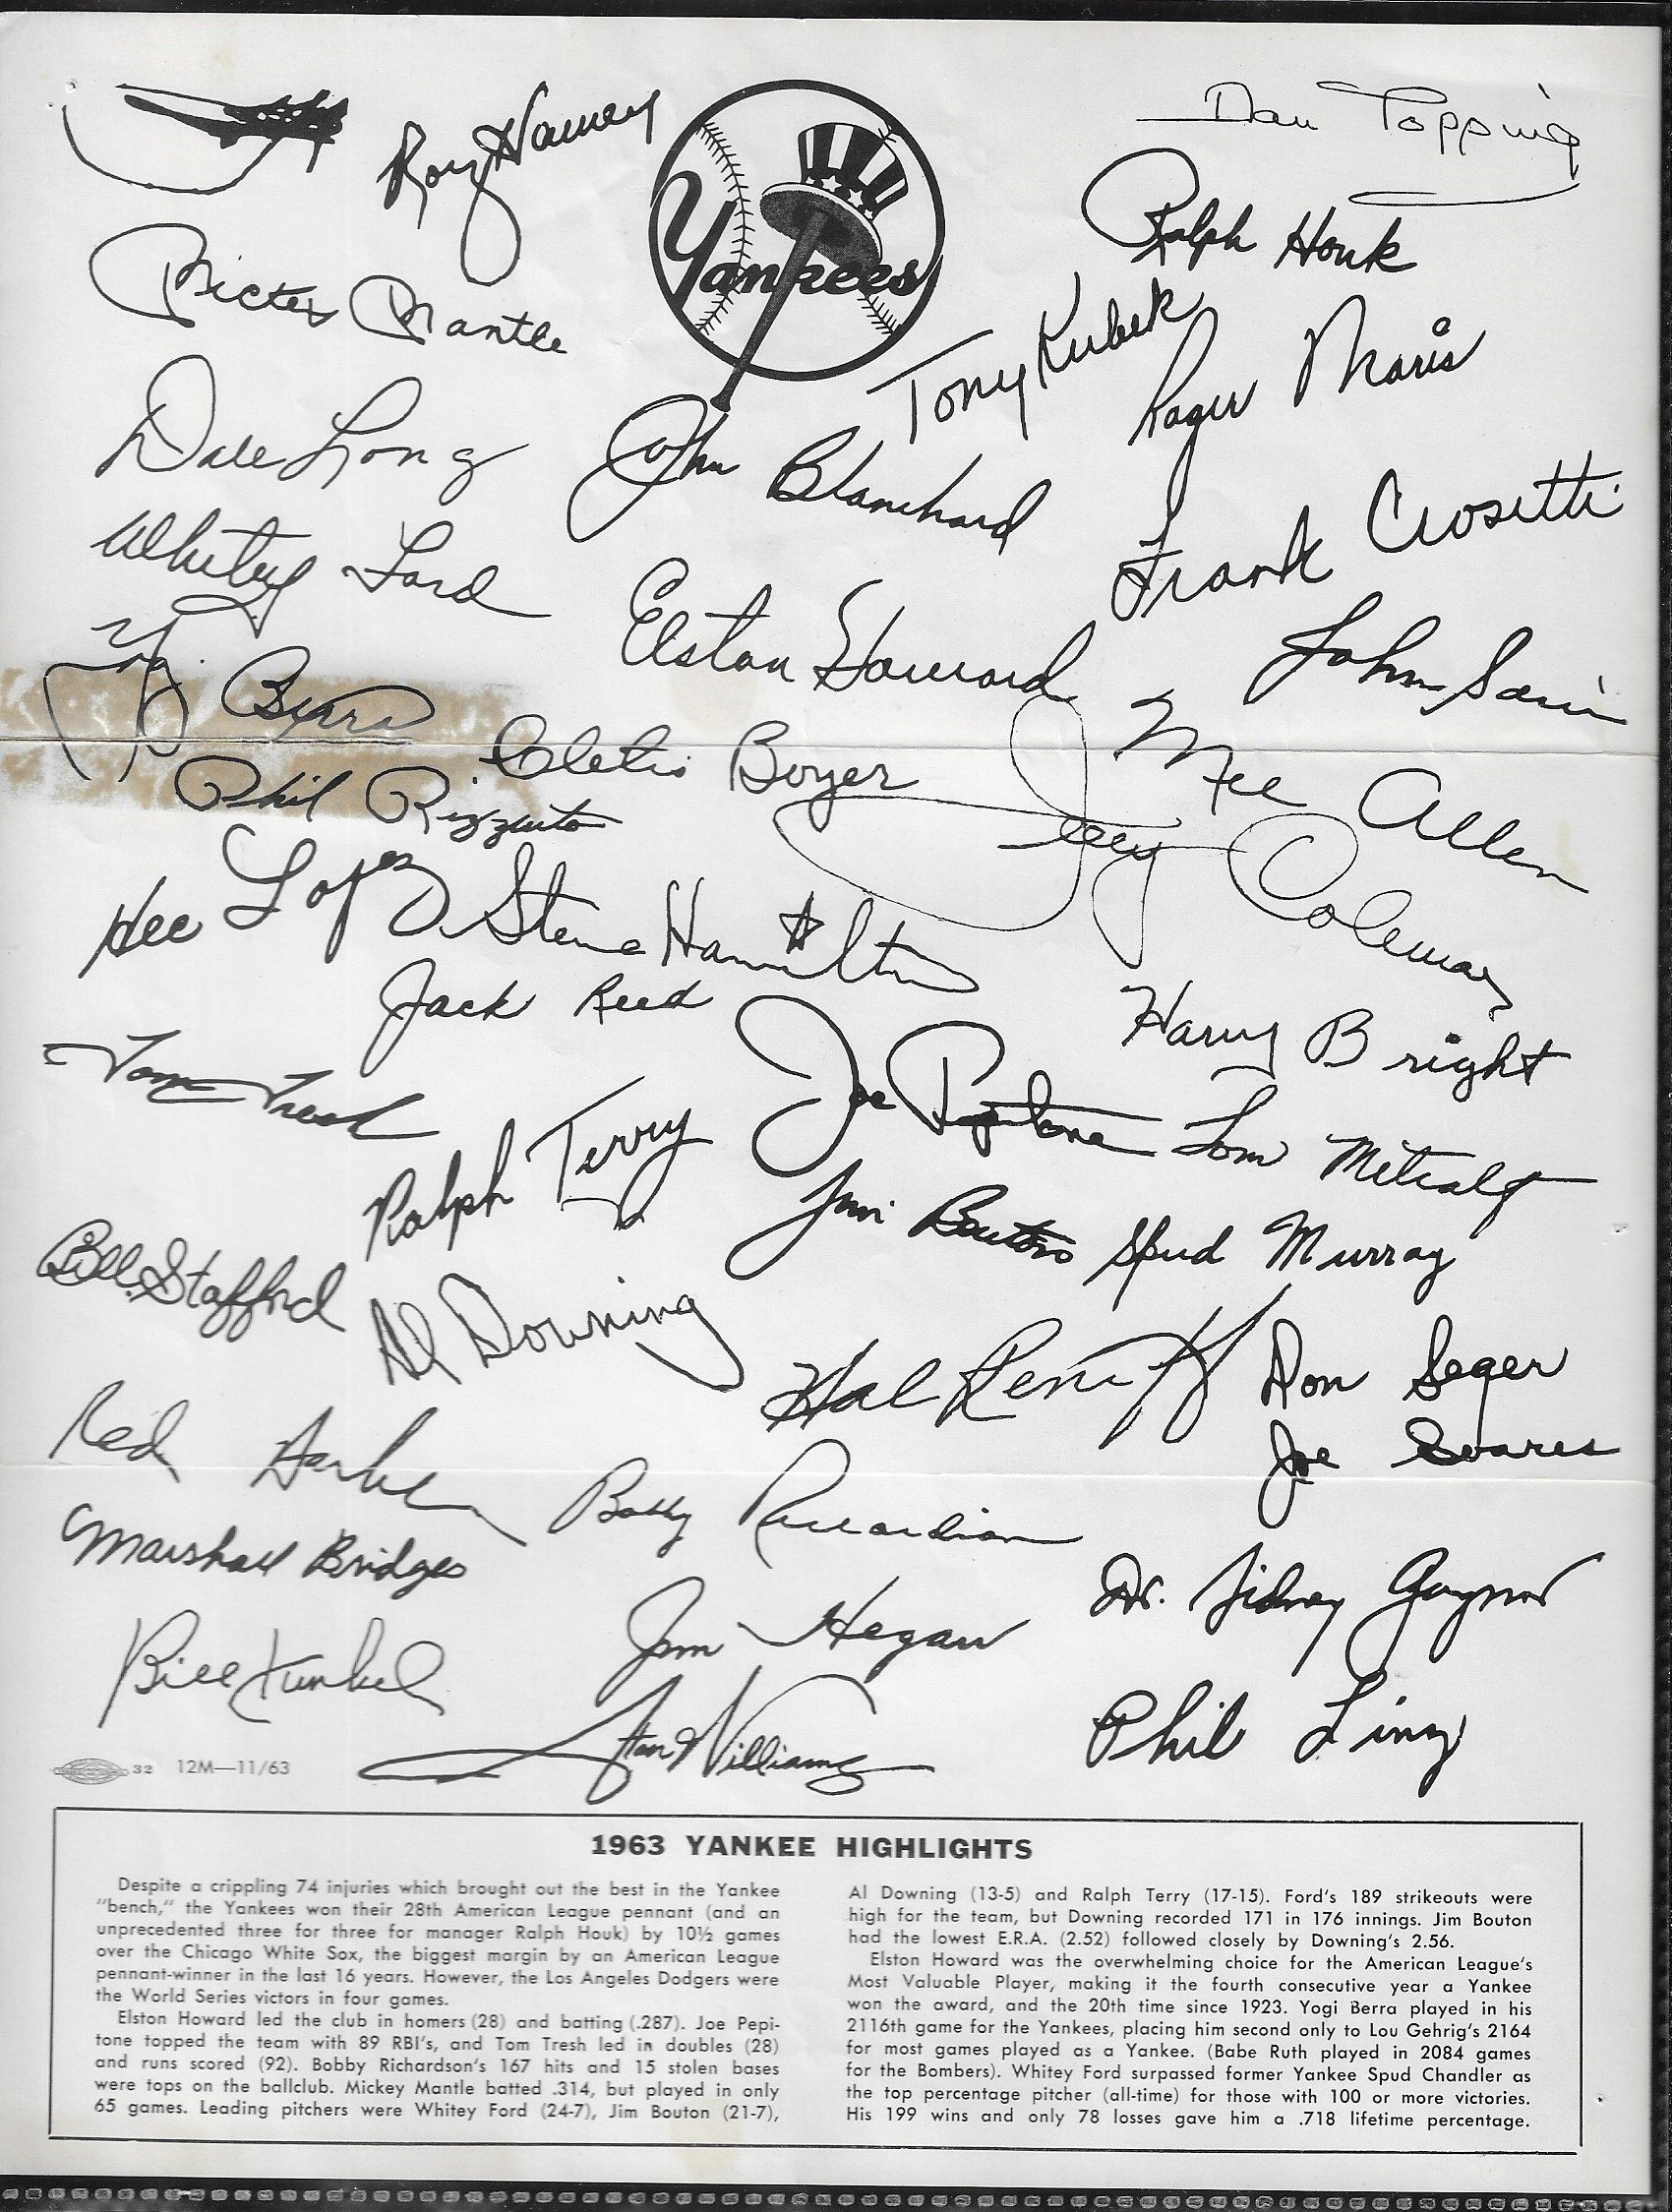 Roy Hamey
Dan Topping
Yankees
Ralph Houk
Mickey Mantle
Tony Kubek
Roger Maris
Dale Long
John Blanchard
Frank Crosetti
Whitey Ford
Elston Howard
John Sain
Yogi Berra
Cletis Boyer
Mel Allen
Phil Rizzuto
Jerry Coleman
Hec Lopez
Steve Hamilton
Jack Reed
Harry Bright
Tom Tresh
Joe Pepitone
Tom Metcalf
Ralph Terry
Jim Bouton
Spud Murray
Bill Stafford
Al Downing
Hal Reniff
Don Seger
Joe Soares
Red
Bobby Richardson
Marshall Bridges
Dr. Sidney Gaynor
Jim Hegan
Bill Kunkel
Stan Williams
Phil Linz
32 12M—11/63
1963 YANKEE HIGHLIGHTS
Despite a crippling 74 injuries which brought out the best in the Yankee
"bench," the Yankees won their 28th American League pennant (and an
unprecedented three for three for manager Ralph Houk) by 10½ games
over the Chicago White Sox, the biggest margin by an American League
pennant-winner in the last 16 years. However, the Los Angeles Dodgers were
the World Series victors in four games.
Elston Howard led the club in homers (28) and batting (.287). Joe Pepi-
tone topped the team with 89 RBI's, and Tom Tresh led in doubles (28)
and runs scored (92). Bobby Richardson's 167 hits and 15 stolen bases
were tops on the ballclub. Mickey Mantle batted .314, but played in only
65 games. Leading pitchers were Whitey Ford (24-7), Jim Bouton (21-7),
Al Downing (13-5) and Ralph Terry (17-15). Ford's 189 strikeouts were
high for the team, but Downing recorded 171 in 176 innings. Jim Bouton
had the lowest E.R.A. (2.52) followed closely by Downing's 2.56.
Elston Howard was the overwhelming choice for the American League's
Most Valuable Player, making it the fourth consecutive year a Yankee
won the award, and the 20th time since 1923. Yogi Berra played in his
2116th game for the Yankees, placing him second only to Lou Gehrig's 2164
for most games played as a Yankee. (Babe Ruth played in 2084 games
for the Bombers). Whitey Ford surpassed former Yankee Spud Chandler as
the top percentage pitcher (all-time) for those with 100 or more victories.
His 199 wins and only 78 losses gave him a .718 lifetime percentage.